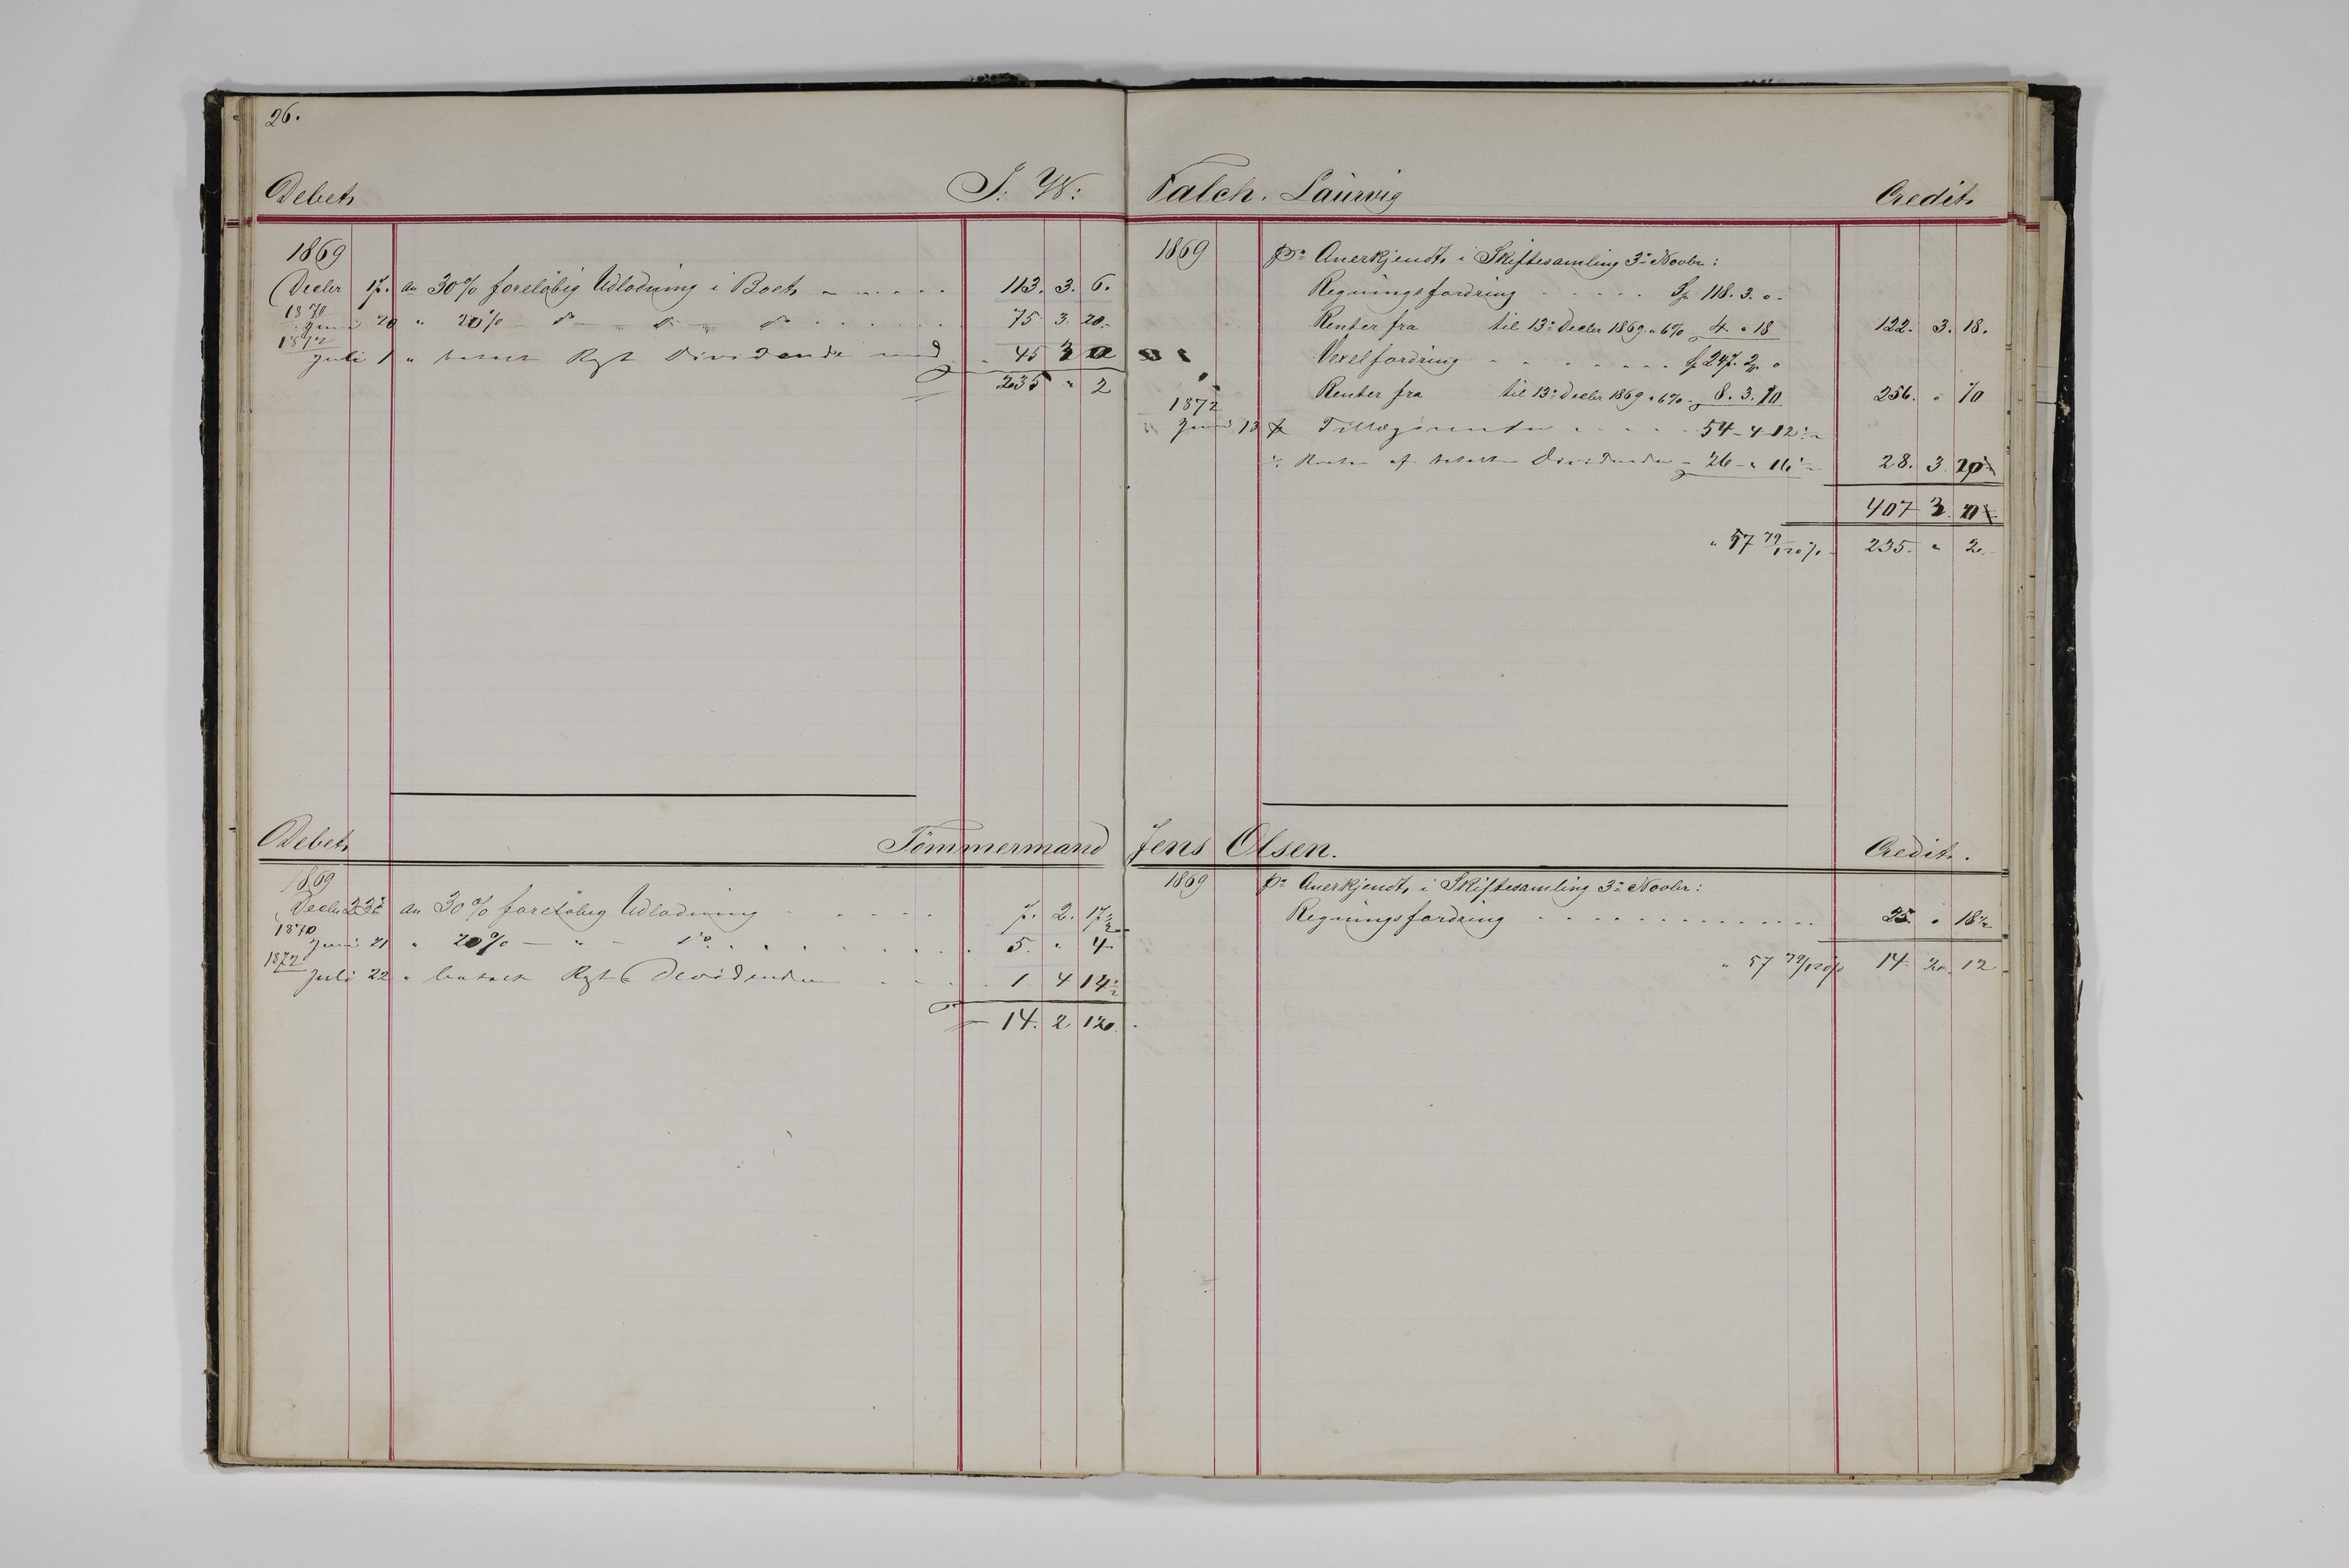 26.
Debet. J. W. Falch. Laurvig Credit.
1869
Decbr 17. an 30% foreløbig Udlodning i Boet 113. 3. 6.
1870
Juni 20 " 20% — do — " — do 75. 3. 20.
1872
Juli 1 " betalt Rest Dividende med 45 3
235 " 2
1869 pr Anerkjendt i Skiftesamling 3die Novbr:
Regningsfordring Sp 118. 3. 0.
Renter fra til 13de Decbr 1869 a 6% 4. " 18 122. 3. 18.
Vexelfordring Sp 247. 2. 0
Renter fra til 13de Decbr 1869 a 6% 8. 3. 10 256. " 10
1872
Juni 13 Tillægsrenter 54 - 4 - 12½
÷ Renter af betalte Dividender 26 - " 16½ 28. 3. 20
407 3.
a 57 79/120% 235. " 2.
Debet. Tömmermand Jens Olsen. Credit.
1869
Decbr 23 an 30% foreløbig Udlodning 7. 2. 17½
1870
Juni 21 " 20% — " — do 5. " 4
1872
Juli 22 " betalt Rest Dividende 1 4 14½
14. 2 12
1869 pr Anerkjendt i Skiftesamling 3die Novbr:
Regningsfordring 25. " 18½
a 57 79/120% 14. 2. 12